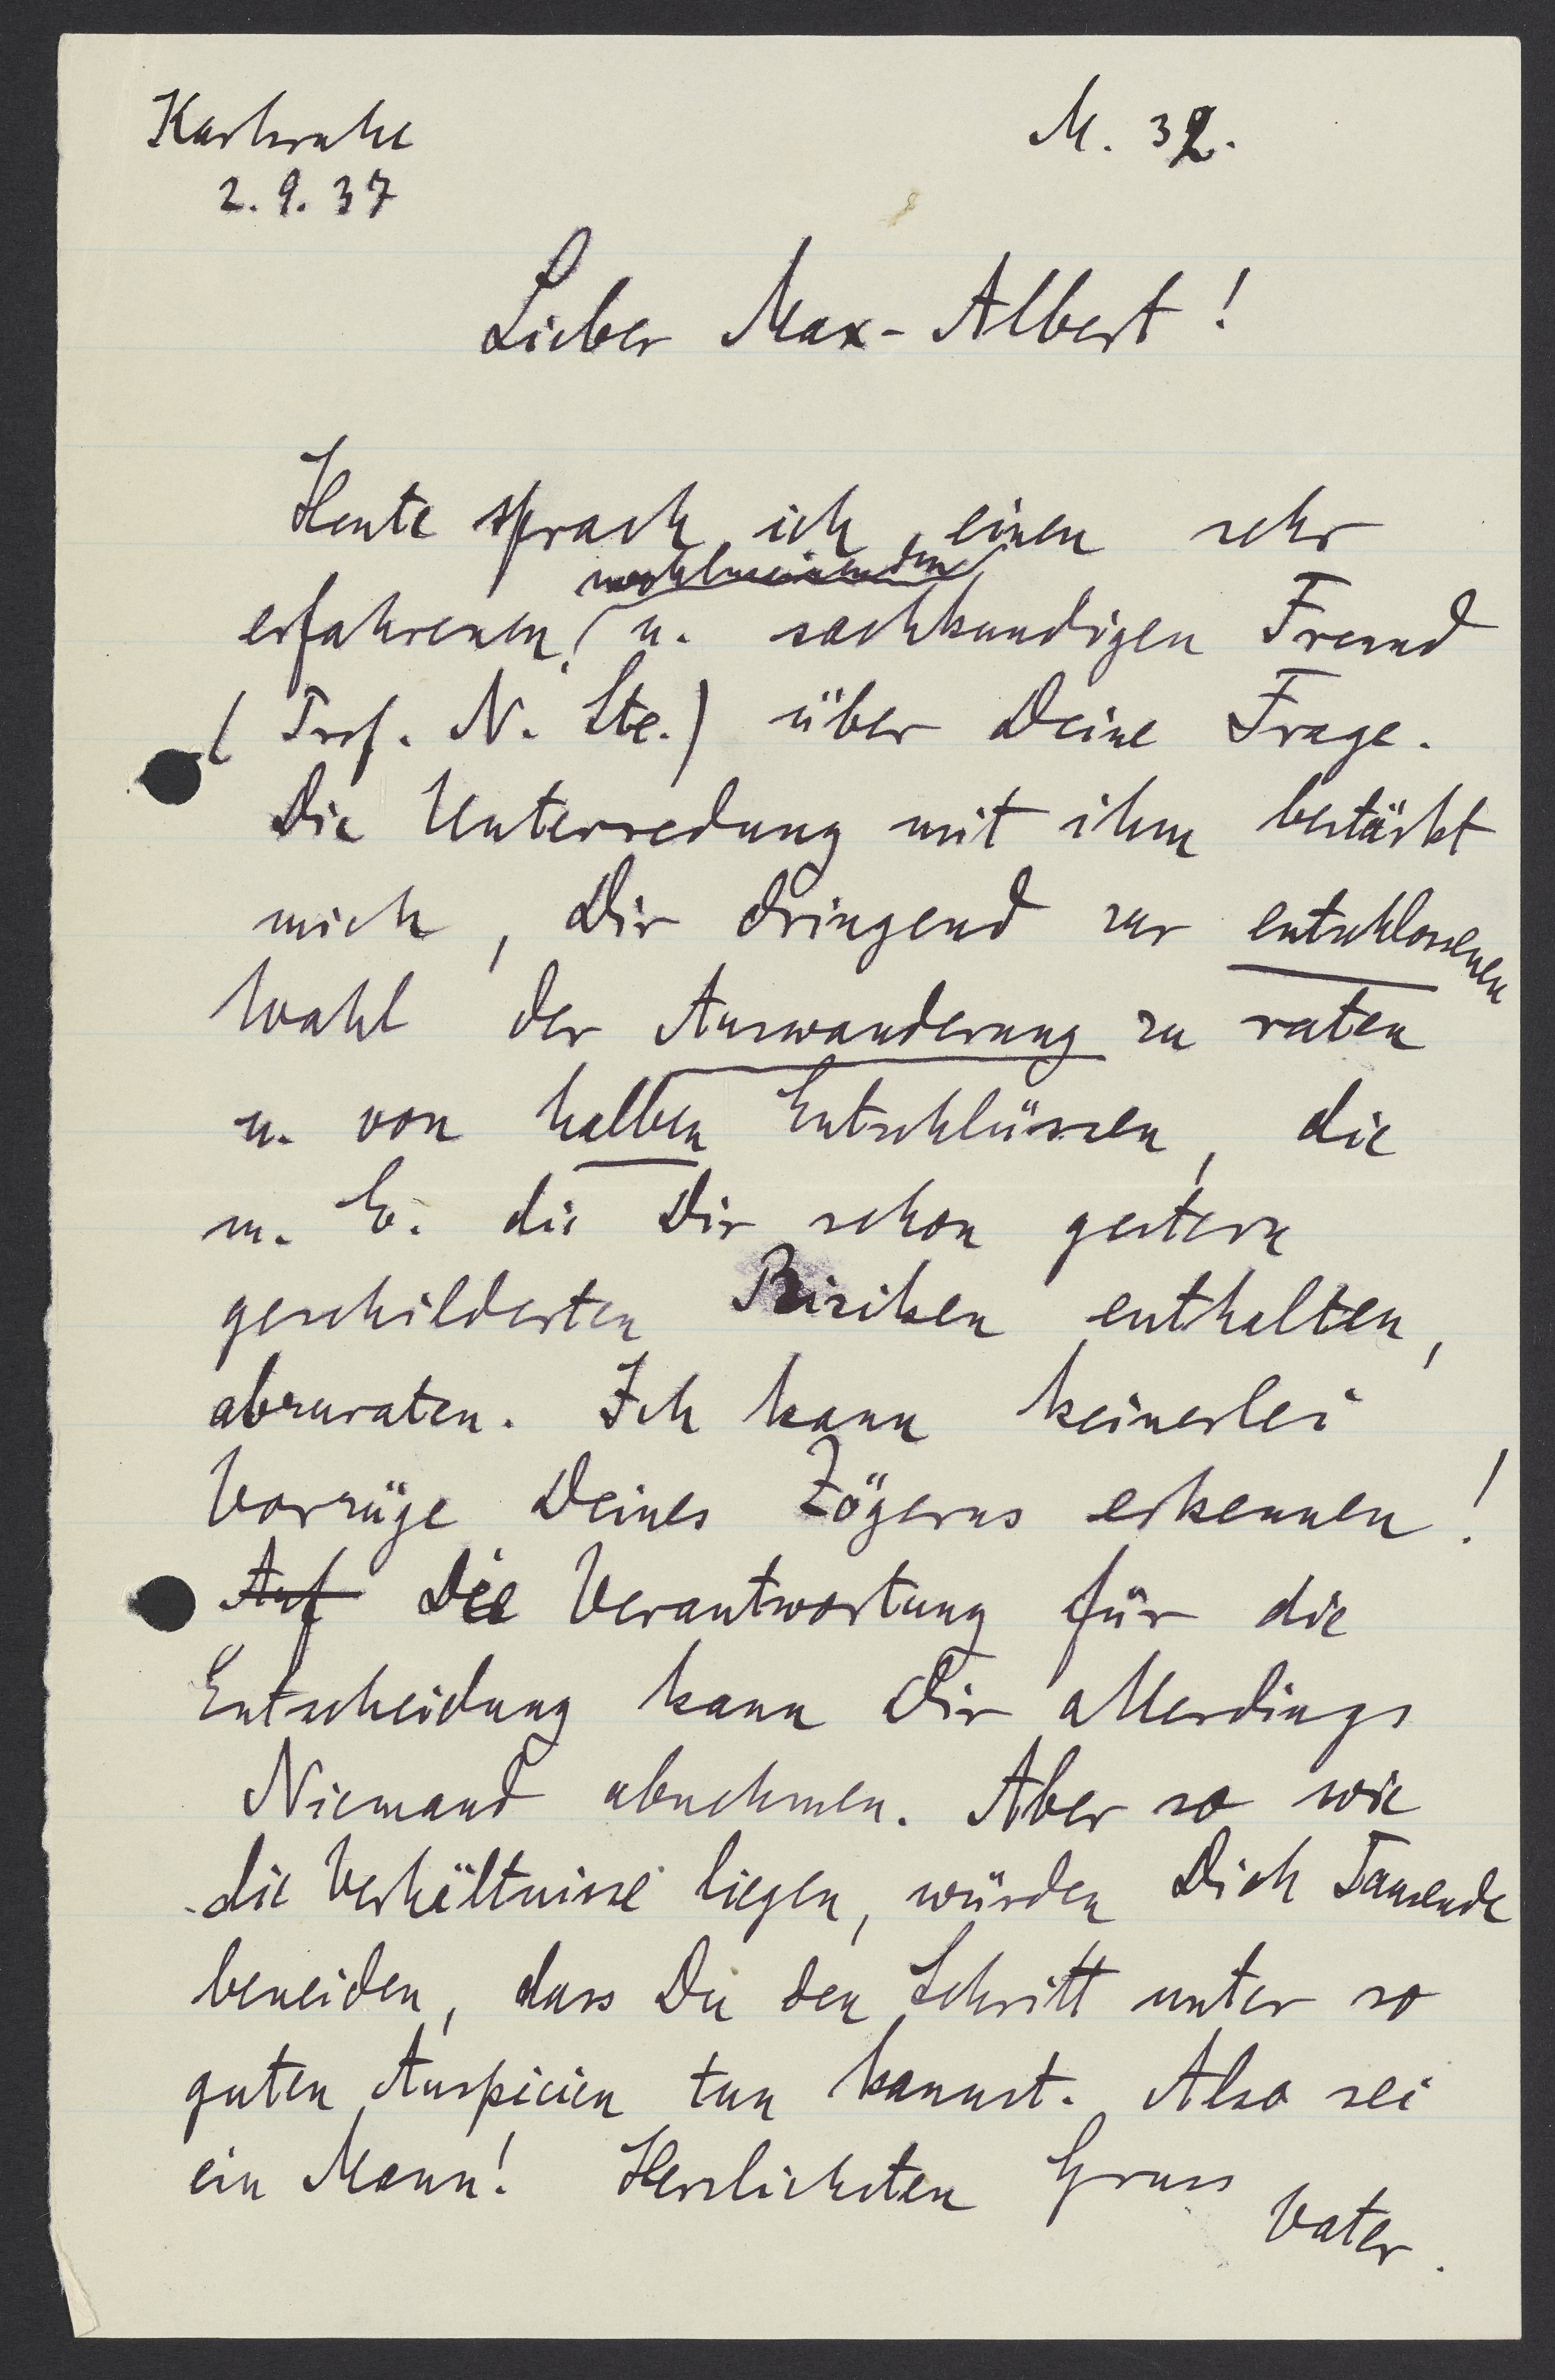 Karlsruhe
M. 32.
2. 9. 37
Lieber Max-Albert!
Heute sprach ich einen sehr
wohlmeinenden
erfahrenen, u. sachkundigen Freund
(Prof. N. Ste.) über Deine Frage.
Die Unterredung mit ihm bestärkt
mich, Dir dringend zur entschlossenen
Wahl der Auswanderung zu raten
u. von halben Entschlüssen, die
m. E. die Dir schon gestern
geschilderten Risiken enthalten,
abzuraten. Ich kann keinerlei
Vorzüge Deines Zögerns erkennen!
Auf Die Verantwortung für die
Entscheidung kann Dir allerdings
Niemand abnehmen. Aber so wie
die Verhältnisse liegen, würden Dich Tausende
beneiden, dass Du den Schritt unter so
guten Auspicien tun kannst. Also sei
ein Mann! Herzlichsten Gruss
Vater.